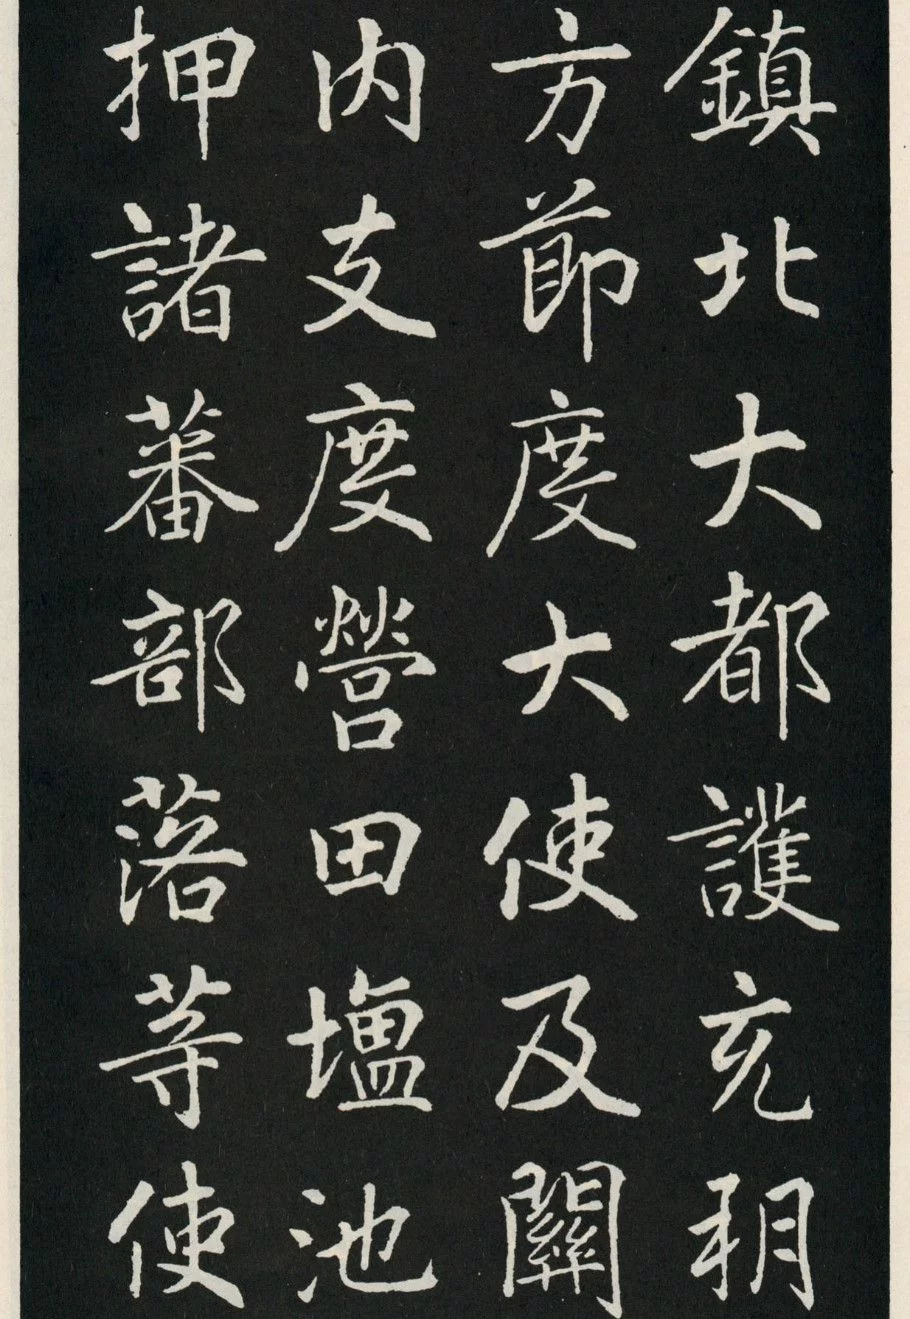 鎮北大都護充朔
方節度大使及關
內支度營田塩池
押諸蕃部落等使